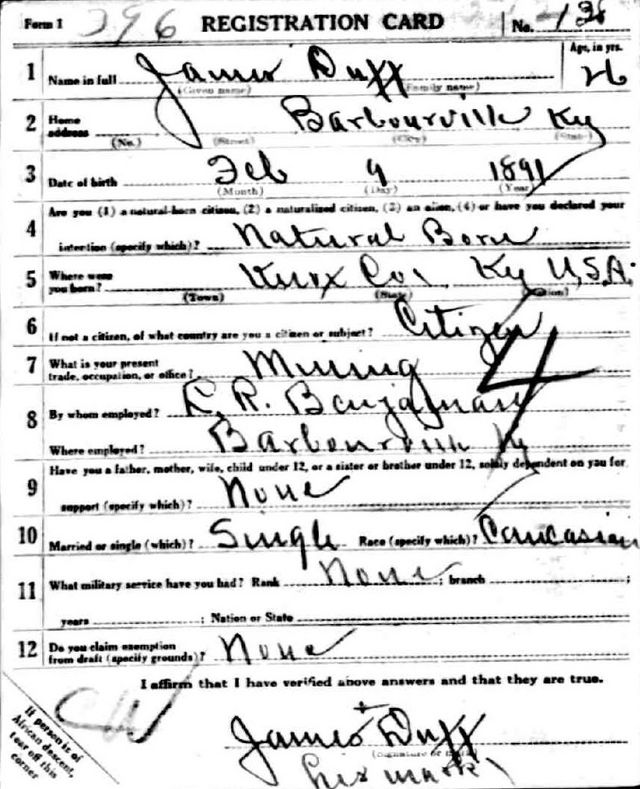 Form 1 396 REGISTRATION CARD No. 136
1 Name in full James Duff Age, in yrs. 26
(Given name) (Family name)
2 Home address Barbourville Ky
(No.) (Street) (City) (State)
3 Date of birth Feb 9 1891
(Month) (Day) (Year)
4 Are you (1) a natural-born citizen, (2) a naturalized citizen, (3) an alien, (4) or have you declared your
intention (specify which)? Natural Born
5 Where were you born? Knox Co. Ky U.S.A.
(Town) (State) (Nation)
6 If not a citizen, of what country are you a citizen or subject? Citizen
7 What is your present trade, occupation, or office? Mining 4
8 By whom employed? R. Benjaman
Where employed? Barbourville Ky
9 Have you a father, mother, wife, child under 12, or a sister or brother under 12, solely dependent on you for
support (specify which)? None
10 Married or single (which)? Single Race (specify which)? Caucasian
11 What military service have you had? Rank None ; branch ;
years ; Nation or State
12 Do you claim exemption from draft (specify grounds)? None
I affirm that I have verified above answers and that they are true.
James + Duff
(Signature or mark)
his mark
If person is of
African descent,
tear off this
corner